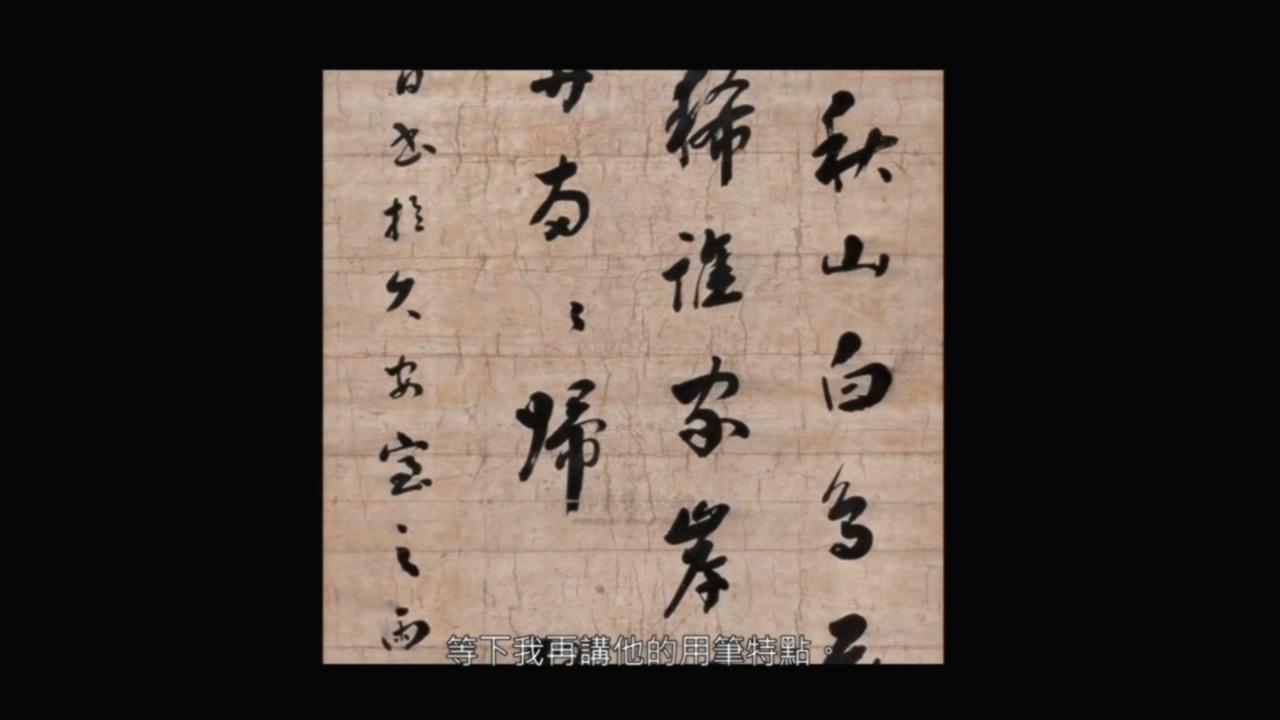 秋山白鳥
稀誰家岸
南〻歸
日書於久安室之雨
等下我再講他的用筆特點。